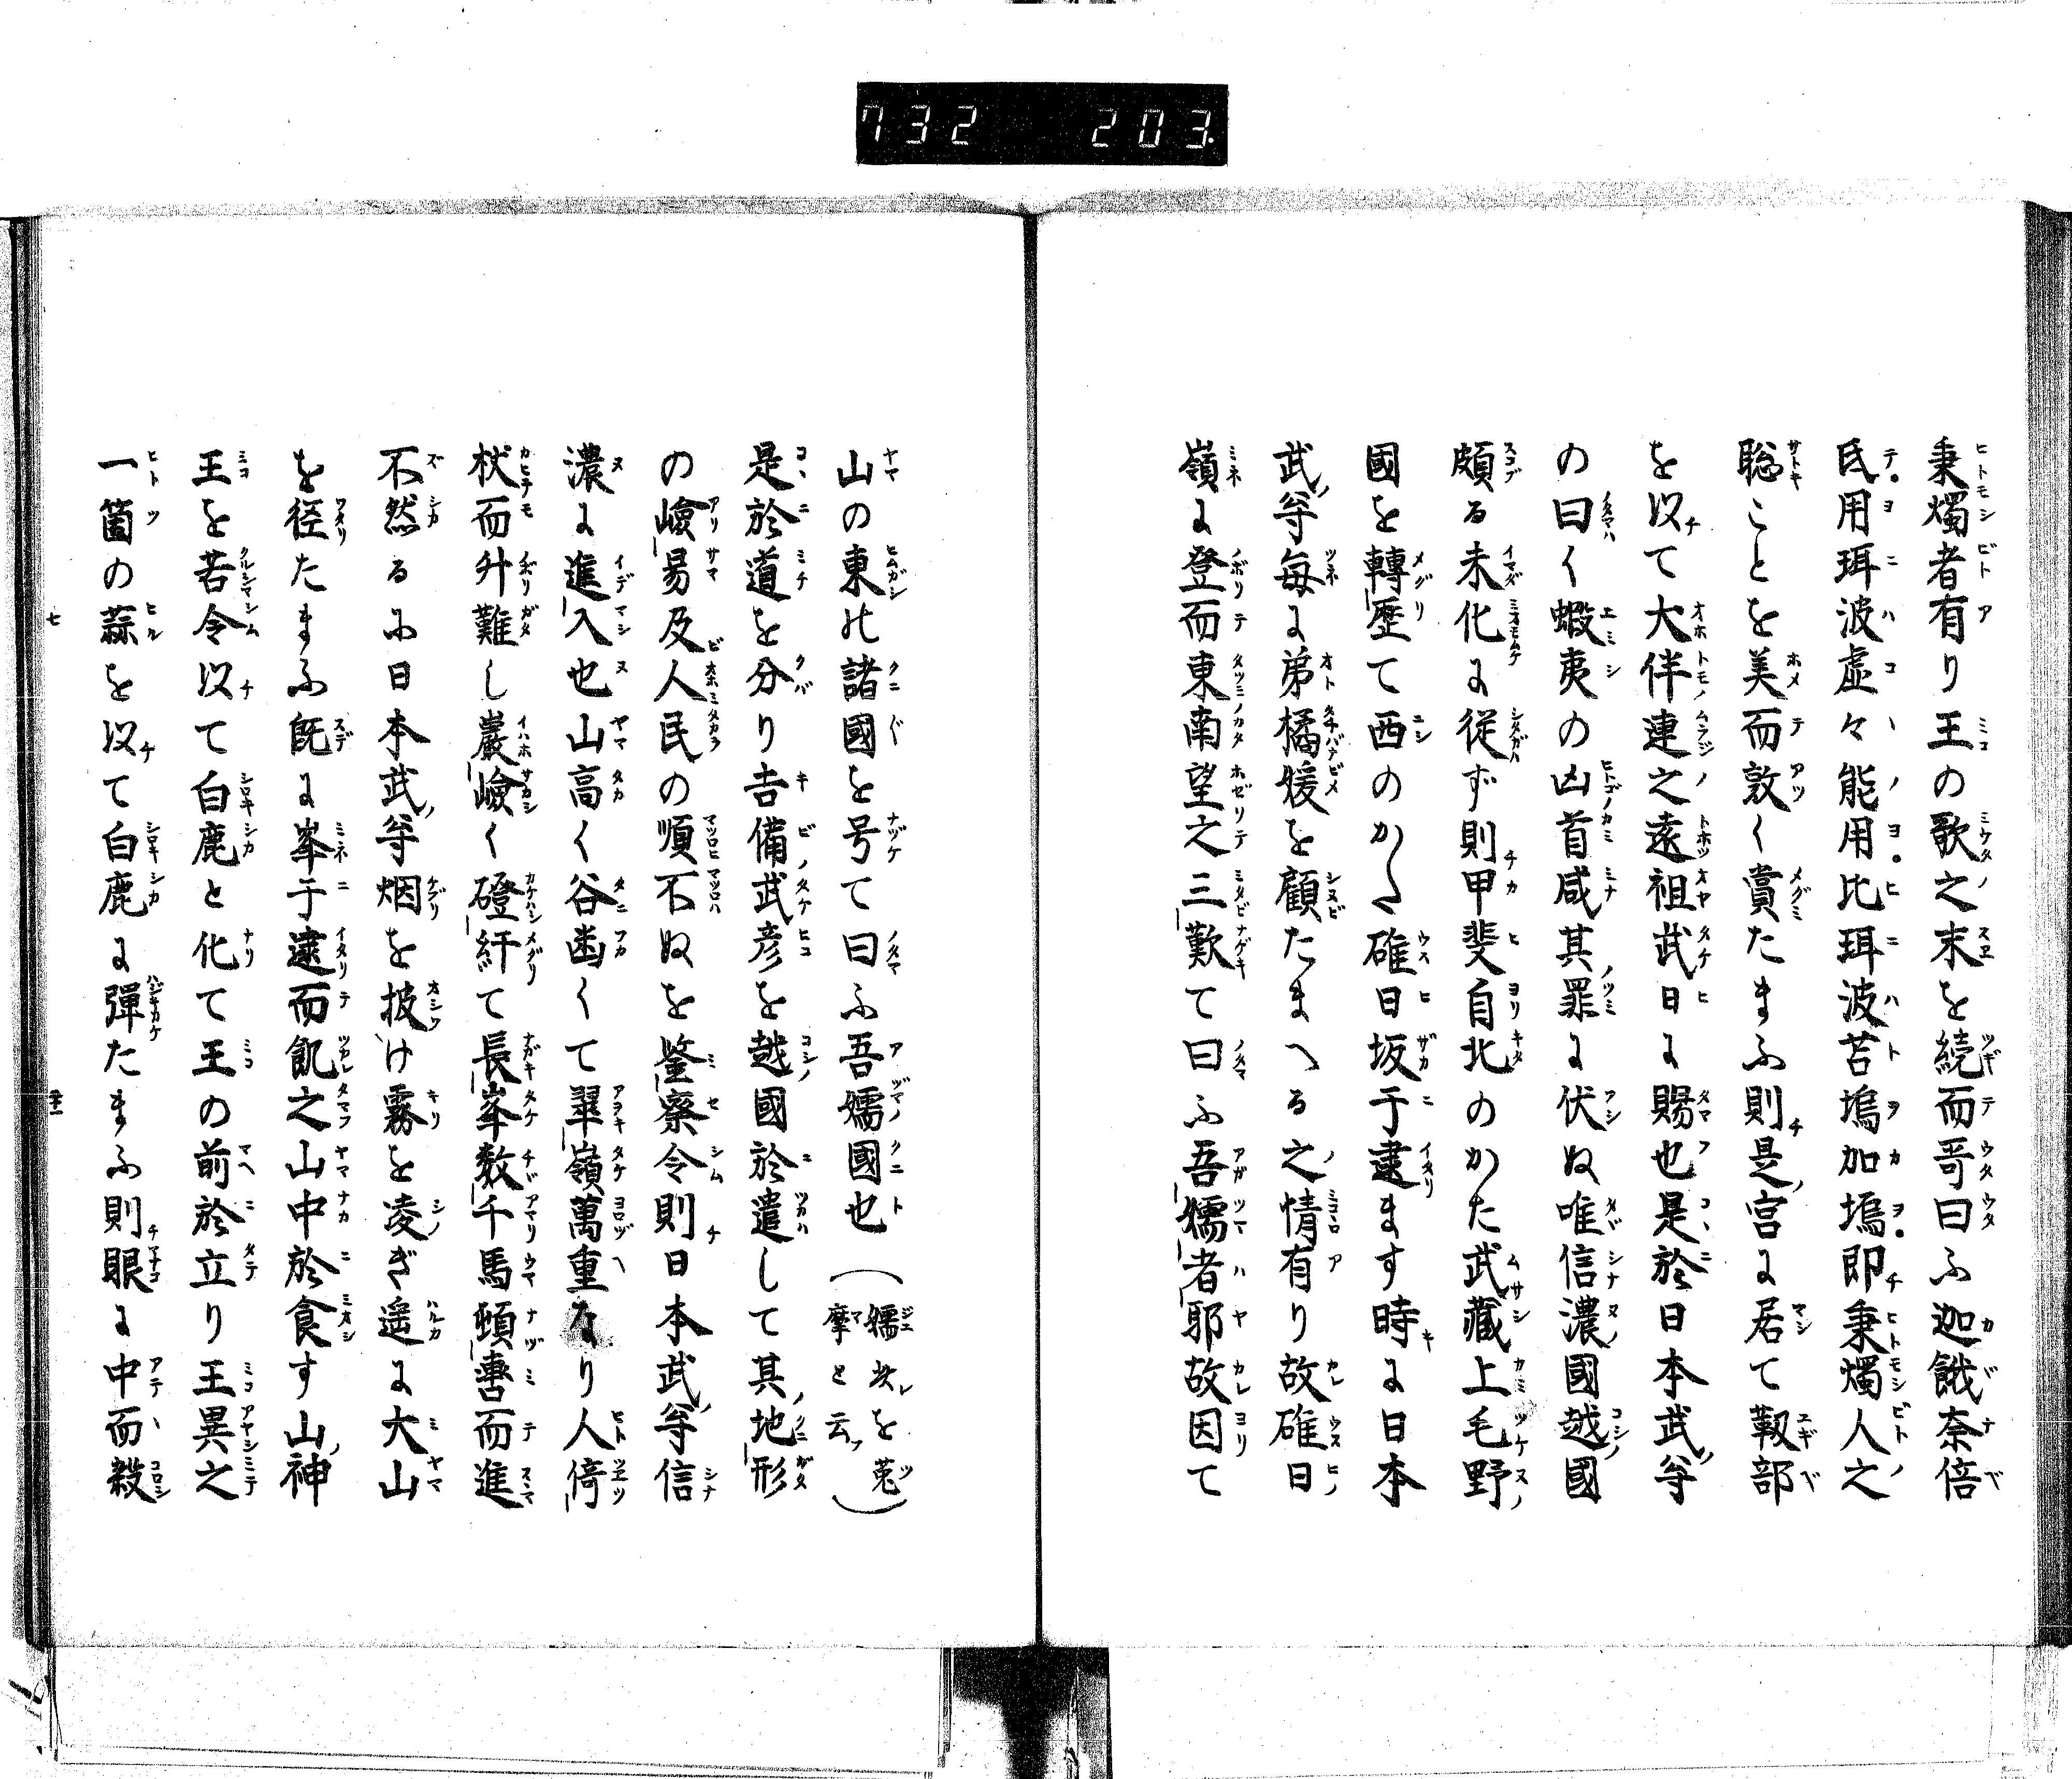 732 203.
秉燭者有り王の歌之末を続而哥曰ふ迦餓奈倍
氐用珥波虚々能用比珥波苫塢加塢即秉燭人之
聡ことを美而敦く賞たまふ則是宮に居て靱部
を以て大伴連之遠祖武日に賜也是於日本武尊
の曰く蝦夷の凶首咸其罪に伏ぬ唯信濃國越國
頗る未化に従ず則甲斐自北のかた武藏上毛野
國を轉歴て西のかた碓日坂于逮ます時に日本
武尊毎に弟橘媛を顧たまへる之情有り故碓日
嶺に登而東南望之三歎て曰ふ吾嬬者耶故因て
山の東の諸國を号て曰ふ吾嬬國也（嬬此を菟摩と云）
是於道を分り吉備武彦を越國於遣して其地形
の嶮易及人民の順不ぬを鍳察令則日本武尊信
濃に進入也山高く谷凾くて翠嶺萬重なり人倚
杖而升難し巖嶮く磴紆て長峯数千馬頓轡而進
不然るに日本武尊烟を披け霧を凌ぎ遥に大山
を径たまふ既に峯于逮而飢之山中於食す山神
王を苦令以て白鹿と化て王の前於立り王異之
一箇の蒜を以て白鹿に彈たまふ則眼に中而殺
七